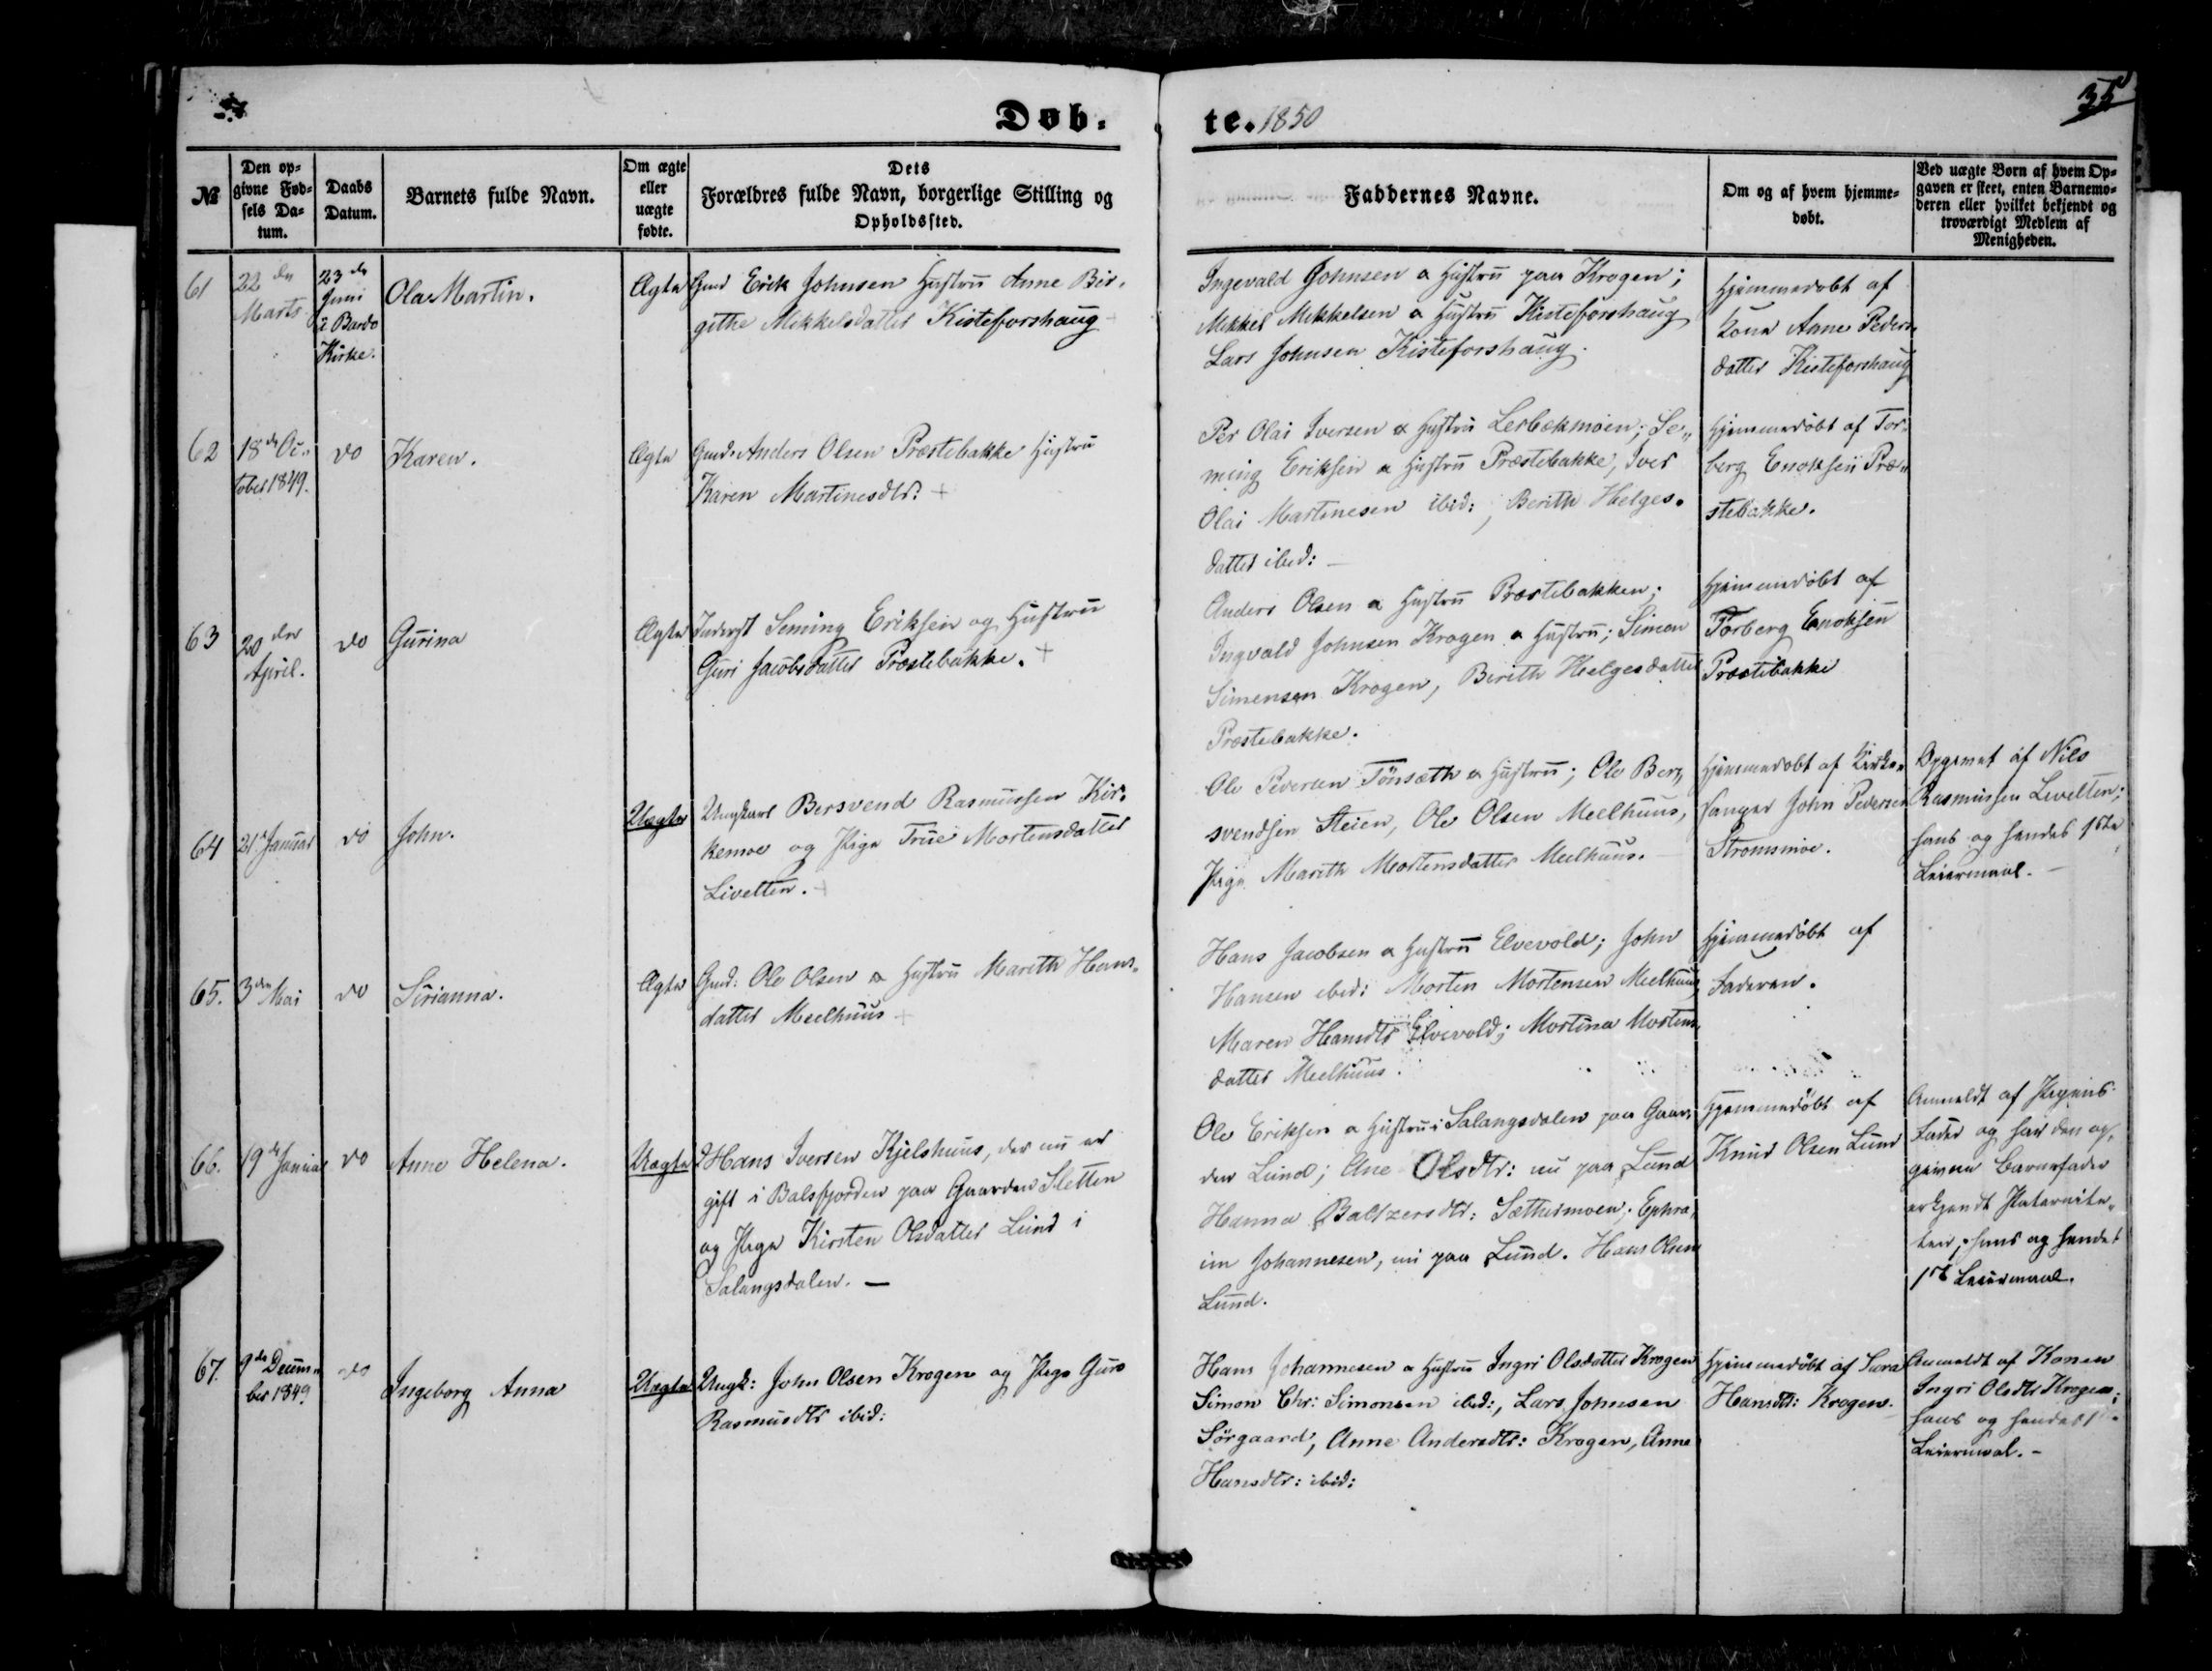 Døb.
te. 1850
35
№
Den op-
givne Fød-
sels Da-
tum.
Daabs
Datum.
Barnets fulde Navn.
Om ægte
eller
uægte
fødte.
Dets
Forældres fulde Navn, borgerlige Stilling og
Opholdssted.
Faddernes Navne.
Om og af hvem hjemme-
døbt.
Ved uægte Børn af hvem Op-
gaven er skeet, enten Barnemo-
deren eller hvilket bekjendt og
troværdigt Medlem af
Menigheden.
61
22de
Marts
23de
Juni
i Bardo
Kirke.
Ola Martin.
Ægte
Gmd Erik Johnsen Hustru Anne Bir-
githe Mikkelsdatter Kisteforshaug
Ingevald Johnsen & Hustru paa Krogen;
Mikkel Mikkelsen & Hustru Kisteforshaug
Lars Johnsen Kisteforshaug.
Hjemmedøbt af
Kone Anne Peders-
datter Kisteforshaug
62
18de Oc-
tober 1849.
do
Karen.
Ægte
Gmd. Anders Olsen Præstebakke Hustru
Karen Martinesdtr: +
Per Olai Iversen & Hustru Lerbekmoen; Se-
ming Eriksen & Hustru Præstebakke, Iver
Olai Martinesen ibid:, Berith Helges-
datter ibid: –
Hjemmedøbt af Tor-
berg Enoksen Præ-
stebakke.
63
20de
April.
do
Gurina
Ægte
Inderst Seming Eriksen og Hustru
Guri Jacobsdatter Præstebakke. +
Anders Olsen & Hustru Præstebakken;
Ingvald Johnsen Krogen & Hustru; Simon
Simensen Krogen, Berith Helgesdatter
Præstebakke.
Hjemmedøbt af
Torberg Enoksen
Præstebakke
64
21de Januar
do
John.
Uægte
Ungkarl Bersvend Rasmussen Kir-
kemoe og Pige True Mortensdatter
Livelten. +
Ole Pedersen Tønsæth & Hustru; Ole Ber-
svendsen Steien, Ole Olsen Meelhuus,
Pige Marith Mortensdatter Meelhuus. –
Hjemmedøbt af Kirke-
sanger John Pedersen
Strømsmoe.
Opgivet af Nils
Rasmussen Livelten;
hans og hendes 1ste
Leiermaal. –
65.
3de Mai
do
Sirianna.
Ægte
Gmd: Ole Olsen & Hustru Marith Hans-
datter Meelhuus +
Hans Jacobsen & Hustru Elvevold; John
Hansen ibid: Morten Mortensen Meelhuus,
Maren Hansdtr Elvevold; Mortina Mortens-
datter Meelhuus.
Hjemmedøbt af
Faderen.
66.
19de Januar
do
Anne Helena.
Uægte
Hans Iversen Kjelshuus, der nu er
gift i Balsfjorden paa Gaarden Sletten
og Pige Kirsten Olsdatter Lund i
Salangsdalen. –
Ole Eriksen & Hustru i Salangsdalen paa Gaar-
den Lund; Ane Olsdtr: nu paa Lund
Hanna Baltzersdtr: Sættermoen; Ephra-
im Johannesen, nu paa Lund. Hans Olsen
Lund.
Hjemmedøbt af
Knud Olsen Lund
Anmeldt af Pigens
Fader og har den op-
givne Barnefader
erkjendt Paternite-
ten; hans og hendes
1ste Leiermaal.
67.
9de Decem-
ber 1849.
do
Ingeborg Anna
Uægte
Ungk: John Olsen Krogen og Pige Guro
Rasmusdtr ibid:
Hans Johannesen & Hustru Ingri Olsdatter Krogen
Simon Chr: Simonsen ibid:, Lars Johnsen
Sørgaard, Anne Andersdtr: Krogen, Anne
Hansdtr: ibid:
Hjemmedøbt af Sara
Hansdtr: Krogen.
Anmeldt af Konen
Ingri Olsdtr Krogen;
hans og hendes 1ste
Leiermaal. –